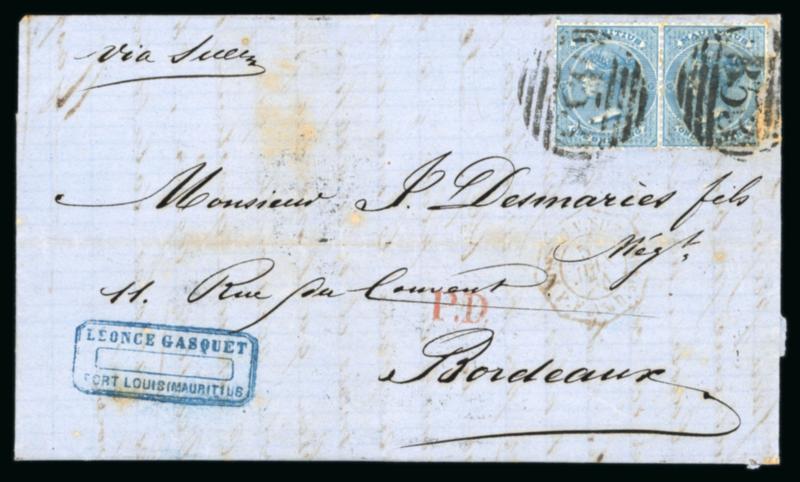 via Suez
MAURITIUS
B53
B53
Monsieur J. Desmaries fils
Négt
11. Rue du Couvent
P.D
Bordeaux
LÉONCE GASQUET
PORT LOUIS (MAURITIUS)